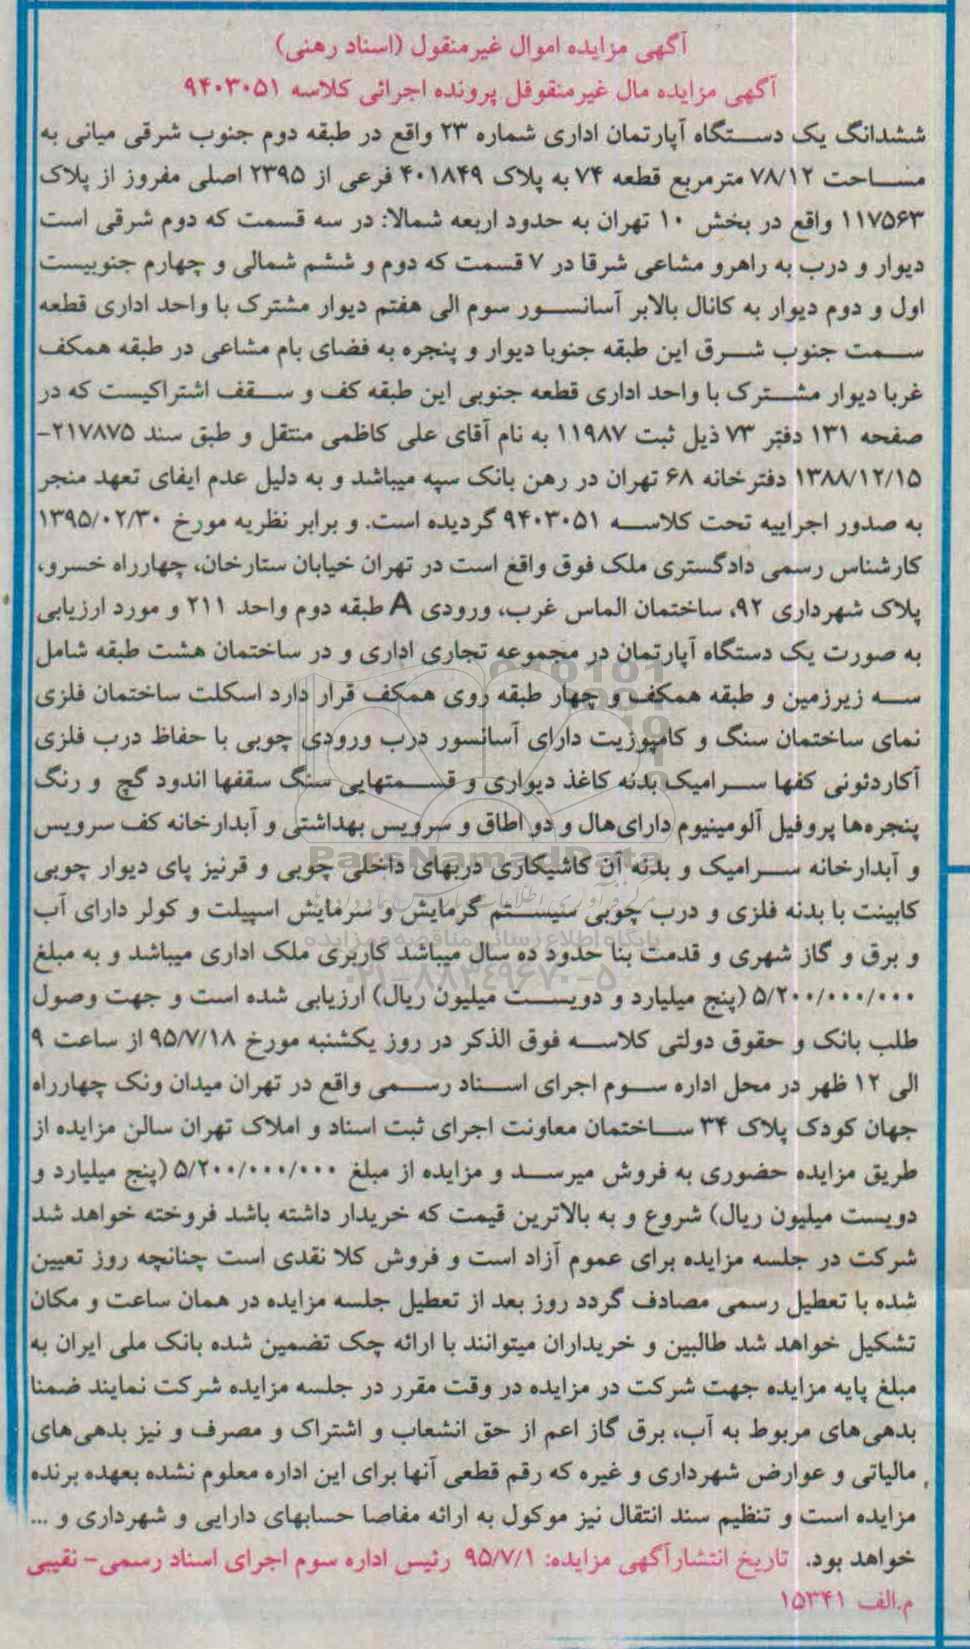 آگهی مزایده اموال غیرمنقول (اسناد رهنی)
آگهی مزایده مال غیرمنقوفل پرونده اجرائی کلاسه ۹۴۰۳۰۵۱
ششدانگ یک دستگاه آپارتمان اداری شماره ۲۳ واقع در طبقه دوم جنوب شرقی میانی به
مساحت ۷۸/۱۲ مترمربع قطعه ۷۴ به پلاک ۴۰۱۸۴۹ فرعی از ۲۳۹۵ اصلی مفروز از پلاک
۱۱۷۵۶۳ واقع در بخش ۱۰ تهران به حدود اربعه شمالا: در سه قسمت که دوم شرقی است
دیوار و درب به راهرو مشاعی شرقا در ۷ قسمت که دوم و ششم شمالی و چهارم جنوبیست
اول و دوم دیوار به کانال بالابر آسانسور سوم الی هفتم دیوار مشترک با واحد اداری قطعه
سمت جنوب شرق این طبقه جنوبا دیوار و پنجره به فضای بام مشاعی در طبقه همکف
غربا دیوار مشترک با واحد اداری قطعه جنوبی این طبقه کف و سقف اشتراکیست که در
صفحه ۱۳۱ دفتر ۷۳ ذیل ثبت ۱۱۹۸۷ به نام آقای علی کاظمی منتقل و طبق سند ۲۱۷۸۷۵-
۱۳۸۸/۱۲/۱۵ دفترخانه ۶۸ تهران در رهن بانک سپه میباشد و به دلیل عدم ایفای تعهد منجر
به صدور اجراییه تحت کلاسه ۹۴۰۳۰۵۱ گردیده است. و برابر نظریه مورخ ۱۳۹۵/۰۲/۳۰
کارشناس رسمی دادگستری ملک فوق واقع است در تهران خیابان ستارخان، چهارراه خسرو،
پلاک شهرداری ۹۲، ساختمان الماس غرب، ورودی A طبقه دوم واحد ۲۱۱ و مورد ارزیابی
به صورت یک دستگاه آپارتمان در مجموعه تجاری اداری و در ساختمان هشت طبقه شامل
سه زیرزمین و طبقه همکف و چهار طبقه روی همکف قرار دارد اسکلت ساختمان فلزی
نمای ساختمان سنگ و کامپوزیت دارای آسانسور درب ورودی چوبی با حفاظ درب فلزی
آکاردئونی کفها سرامیک بدنه کاغذ دیواری و قسمتهایی سنگ سقفها اندود گچ و رنگ
پنجره‌ها پروفیل آلومینیوم دارای‌هال و دو اطاق و سرویس بهداشتی و آبدارخانه کف سرویس
ParsNamadData
و آبدارخانه سرامیک و بدنه آن کاشیکاری دربهای داخلی چوبی و قرنیز پای دیوار چوبی
کابینت با بدنه فلزی و درب چوبی سیستم گرمایش و سرمایش اسپیلت و کولر دارای آب
پایگاه اطلاع رسانی مناقصه و مزایده
و برق و گاز شهری و قدمت بنا حدود ده سال میباشد کاربری ملک اداری میباشد و به مبلغ
۰۲۱-۸۸۳۴۹۶۷۰-۵
۵/۲۰۰/۰۰۰/۰۰۰ (پنج میلیارد و دویست میلیون ریال) ارزیابی شده است و جهت وصول
طلب بانک و حقوق دولتی کلاسه فوق الذکر در روز یکشنبه مورخ ۹۵/۷/۱۸ از ساعت ۹
الی ۱۲ ظهر در محل اداره سوم اجرای اسناد رسمی واقع در تهران میدان ونک چهارراه
جهان کودک پلاک ۳۴ ساختمان معاونت اجرای ثبت اسناد و املاک تهران سالن مزایده از
طریق مزایده حضوری به فروش میرسد و مزایده از مبلغ ۵/۲۰۰/۰۰۰/۰۰۰ (پنج میلیارد و
دویست میلیون ریال) شروع و به بالاترین قیمت که خریدار داشته باشد فروخته خواهد شد
شرکت در جلسه مزایده برای عموم آزاد است و فروش کلا نقدی است چنانچه روز تعیین
شده با تعطیل رسمی مصادف گردد روز بعد از تعطیل جلسه مزایده در همان ساعت و مکان
تشکیل خواهد شد طالبین و خریداران میتوانند با ارائه چک تضمین شده بانک ملی ایران به
مبلغ پایه مزایده جهت شرکت در مزایده در وقت مقرر در جلسه مزایده شرکت نمایند ضمنا
بدهی‌های مربوط به آب، برق گاز اعم از حق انشعاب و اشتراک و مصرف و نیز بدهی‌های
مالیاتی و عوارض شهرداری و غیره که رقم قطعی آنها برای این اداره معلوم نشده بعهده برنده
مزایده است و تنظیم سند انتقال نیز موکول به ارائه مفاصا حسابهای دارایی و شهرداری و ...
خواهد بود. تاریخ انتشارآگهی مزایده: ۹۵/۷/۱ رئیس اداره سوم اجرای اسناد رسمی- نقیبی
م.الف ۱۵۳۴۱